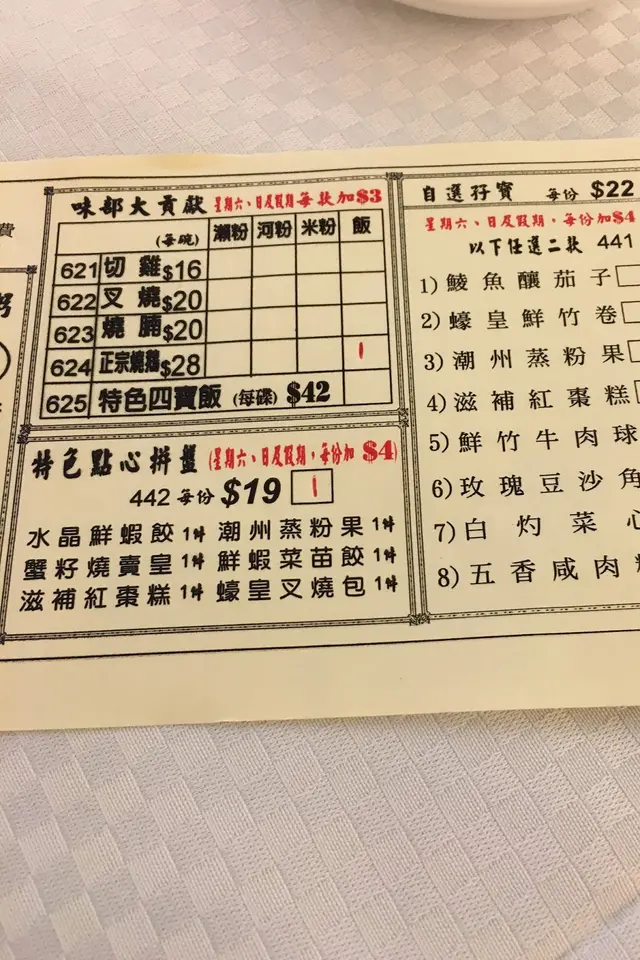 費
味部大貢獻 星期六、日及假期每款加$3
(每碗) 瀨粉 河粉 米粉 飯
621 切雞 $16
622 叉燒 $20
623 燒腩 $20
624 正宗燒鵝 $28 1
625 特色四寶飯 (每碟) $42
特色點心拼盤 (星期六、日及假期，每份加 $4)
442 每份 $19 1
水晶鮮蝦餃 1件 潮州蒸粉果 1件
蟹籽燒賣皇 1件 鮮蝦菜苗餃 1件
滋補紅棗糕 1件 蠔皇叉燒包 1件
自選孖寶 每份 $22
星期六、日及假期，每份加$4
以下任選二款 441
1) 鯪魚釀茄子
2) 蠔皇鮮竹卷
3) 潮州蒸粉果
4) 滋補紅棗糕
5) 鮮竹牛肉球
6) 玫瑰豆沙角
7) 白灼菜心
8) 五香咸肉